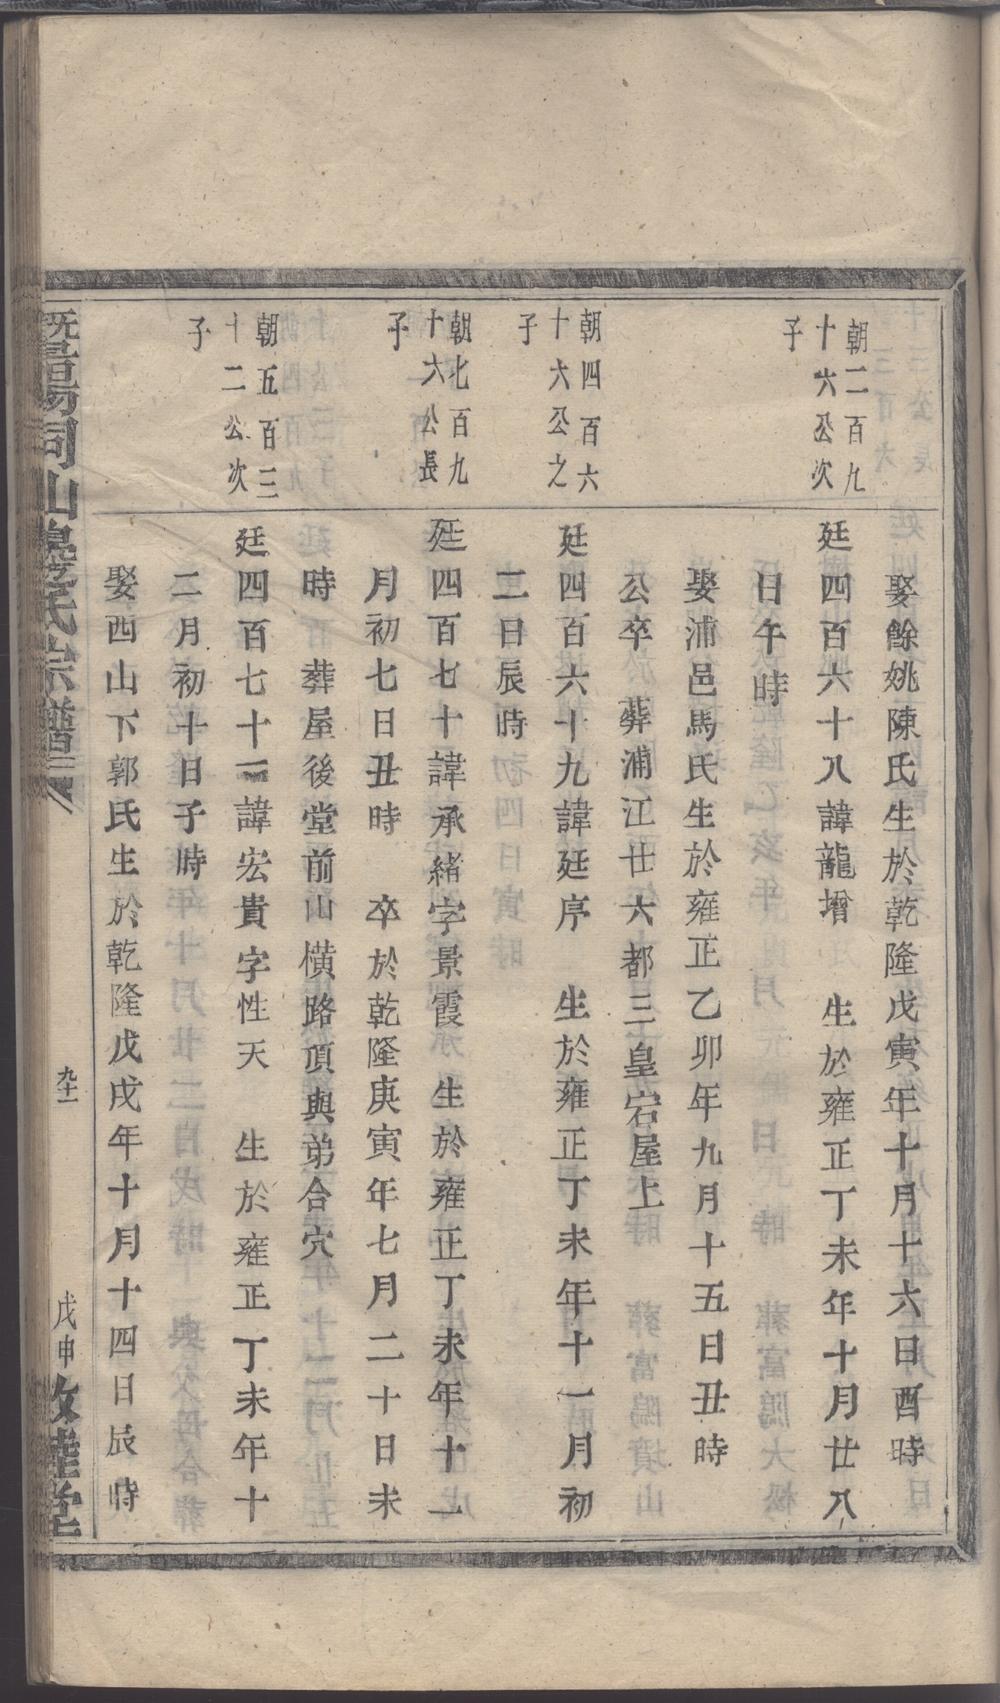 娶餘姚陳氏生於乾隆戊寅年十月十六日酉時
朝二百九
十六公次
子
廷四百六十八諱龍增　生於雍正丁未年十月廿八
日午時
娶浦邑馬氏生於雍正乙卯年九月十五日丑時
公卒　葬浦江廿六都三皇宕屋上
朝四百六
十六公之
子
廷四百六十九諱廷序　生於雍正丁未年十一月初
二日辰時
朝北百九
十六公長
子
廷四百七十諱承緒字景霞　生於雍正丁未年十二
月初七日丑時　卒於乾隆庚寅年七月二十日未
時　葬屋後堂前山橫路頂與弟合穴
朝五百三
十二公次
子
廷四百七十一諱宏貴字性天　生於雍正丁未年十
二月初十日子時
娶西山下郭氏生於乾隆戊戌年十月十四日辰時
暨陽同山邊氏宗譜
九十一
戊申敦睦堂